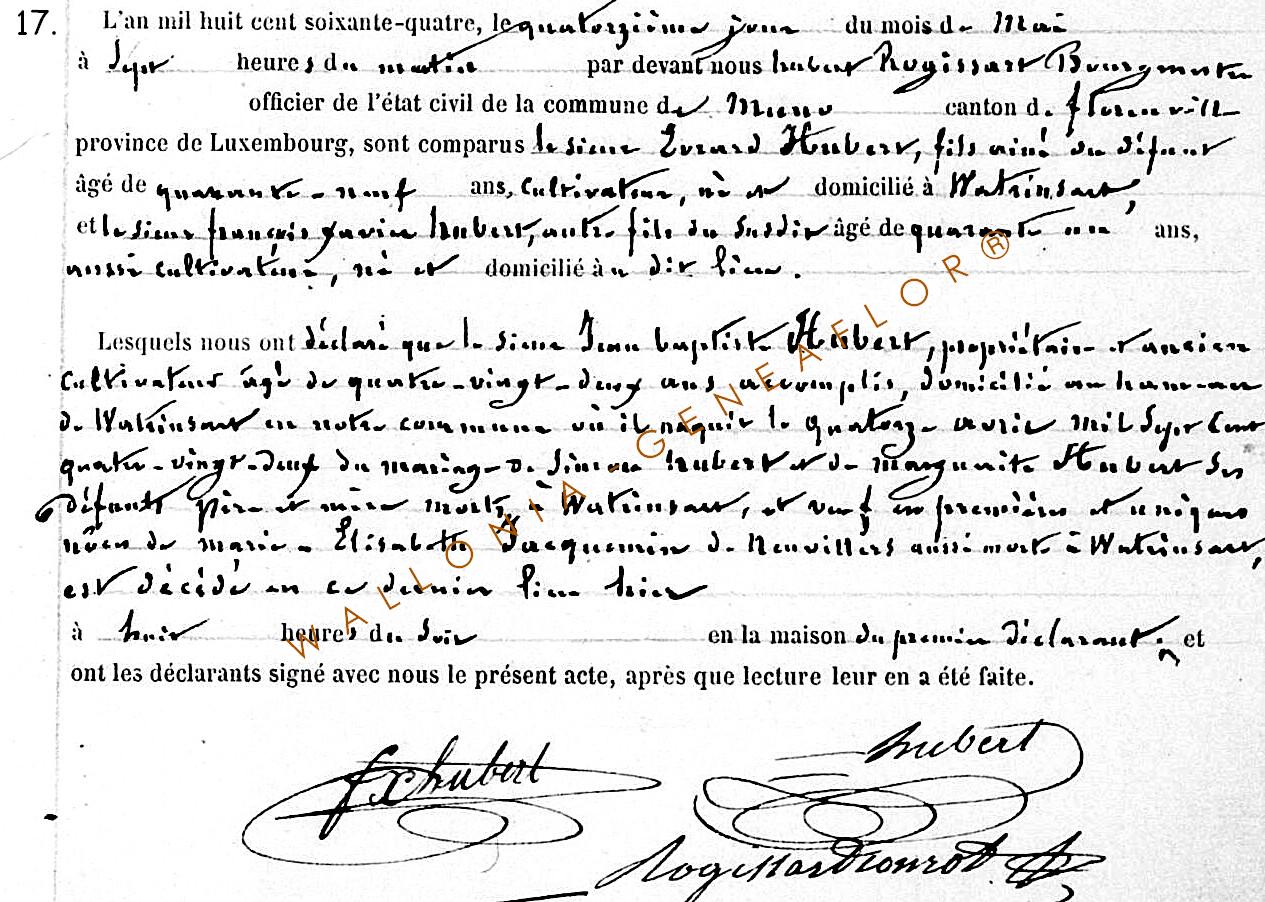 17. L'an mil huit cent soixante-quatre, le quatorzième jour du mois de Mai
à Sept heures du matin par devant nous hubert Rogissart Bourgmestre
officier de l'état civil de la commune de Muno canton de florenville
province de Luxembourg, sont comparus le sieur Evrard Hubert, fils ainé du défunt
âgé de quarante-neuf ans, Cultivateur, né et domicilié à Watrinsart,
et le sieur françois xavier hubert, autre fils du susdit âgé de quarante un ans,
aussi cultivateur, né et domicilié à u dit lieu.
Lesquels nous ont déclaré que le sieur Jean baptiste Hubert, propriétaire et ancien
Cultivateur âgé de quatre-vingt-deux ans accomplis, domicilié au hameau
de Watrinsart en notre commune où il naquit le quatorze avril mil sept Cent
quatre-vingt-deux du mariage de Simon hubert et de marguerite Hubert ses
défunts père et mère morts à Watrinsart, et veuf en premières et uniques
nôces de marie-Elisabeth Jacquemin de Neuvillers aussi morte à Watrinsart,
est décédé en ce dernier lieu hier
à huit heures du soir en la maison du premier déclarant. et
ont les déclarants signé avec nous le présent acte, après que lecture leur en a été faite.
fx hubert
hubert
Rogissart
WALLONIA-GENEAFLOR®